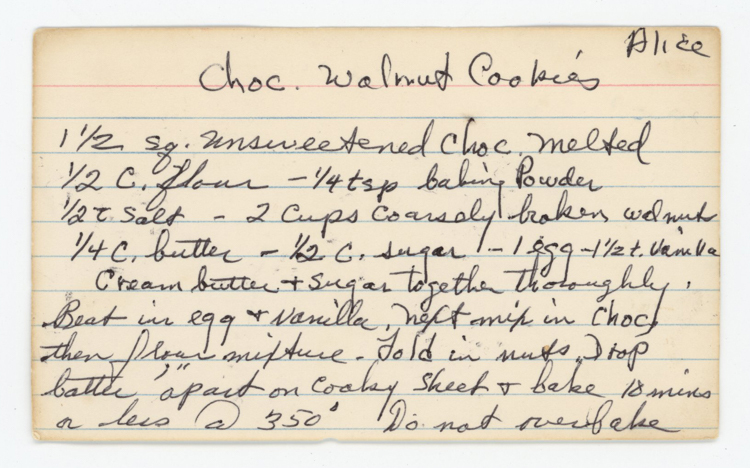 Alice
Choc. Walnut Cookies
1 1/2 sq. unsweetened Choc. melted
1/2 C. flour - 1/4 tsp baking Powder
1/2 t salt - 2 cups coarsely broken walnuts
1/4 C. butter - 1/2 C. sugar - 1 egg - 1 1/2 t. vanilla
Cream butter + sugar together thoroughly.
Beat in egg + vanilla, next mix in choc,
then flour mixture. Fold in nuts. Drop
batter 1" apart on cooky sheet + bake 10 mins
or less @ 350° Do not overbake